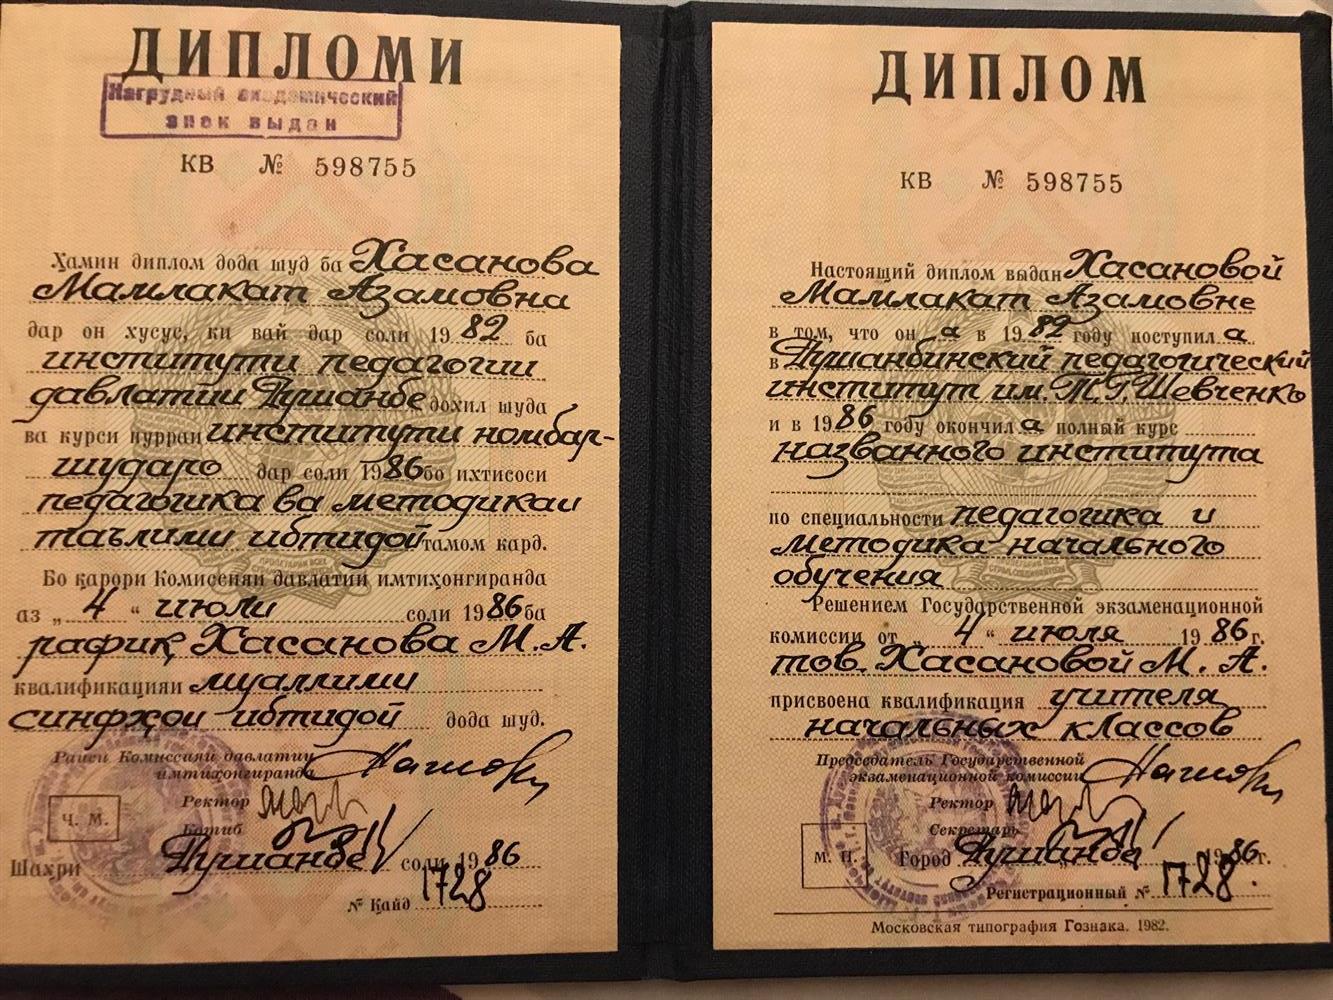 ДИПЛОМИ
Нагрудный академический
знак выдан
КВ № 598755
Ҳамин диплом дода шуд ба Хасанова
Мамлакат Азамовна
дар он хусус, ки вай дар соли 1982 ба
институти педагогии
давлатии Душанбе дохил шуда
ва курси пурраи институти номбар-
шударо дар соли 1986 бо ихтисоси
педагогика ва методикаи
таълими ибтидой тамом кард.
Бо қарори Комиссияи давлатии имтиҳонгиранда
аз „4“ июли соли 1986 ба
рафиқ Хасанова М.А.
квалификацияи муаллими
синфҳои ибтидой дода шуд.
Раиси Комиссияи давлатии
имтиҳонгиранда
Ректор
Котиб
Ч. М.
Шаҳри Душанбе соли 1986
№ Қайд 1728
ДИПЛОМ
КВ № 598755
Настоящий диплом выдан Хасановой
Мамлакат Азамовне
в том, что он а в 1982 году поступил а
в Душанбинский педагогический
институт им. Т.Г. Шевченко
и в 1986 году окончил а полный курс
названного института
по специальности педагогика и
методика начального
обучения
Решением Государственной экзаменационной
комиссии от „4“ июля 1986 г.
тов. Хасановой М. А.
присвоена квалификация учителя
начальных классов
Председатель Государственной
экзаменационной комиссии
Ректор
Секретарь
М. П.
Город Душанбе 1986 г.
Регистрационный № 1728.
Московская типография Гознака. 1982.